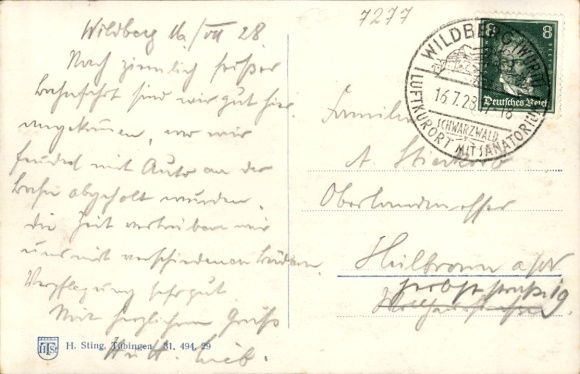 7277
Wildberg 16/VII 28.
Nach ziemlich heißer
Bahnfahrt sind wir gut hier
angekommen, wo wir
feudal mit Auto an der
Bahn abgeholt wurden.
die Zeit vertreiben wir
uns mit verschiedenen Bädern.
Verpflegung sehr gut
Mit herzlichem Gruß
WILDBERG (WÜRTT
16.7.28.
16
SCHWARZWALD
LUFTKURORT MIT SANATORIUM
8
Deutsches Reich
Familie
A.
Oberlandmesser
Heilbronn a/N
H. Sting, Tübingen 31. 494. 29